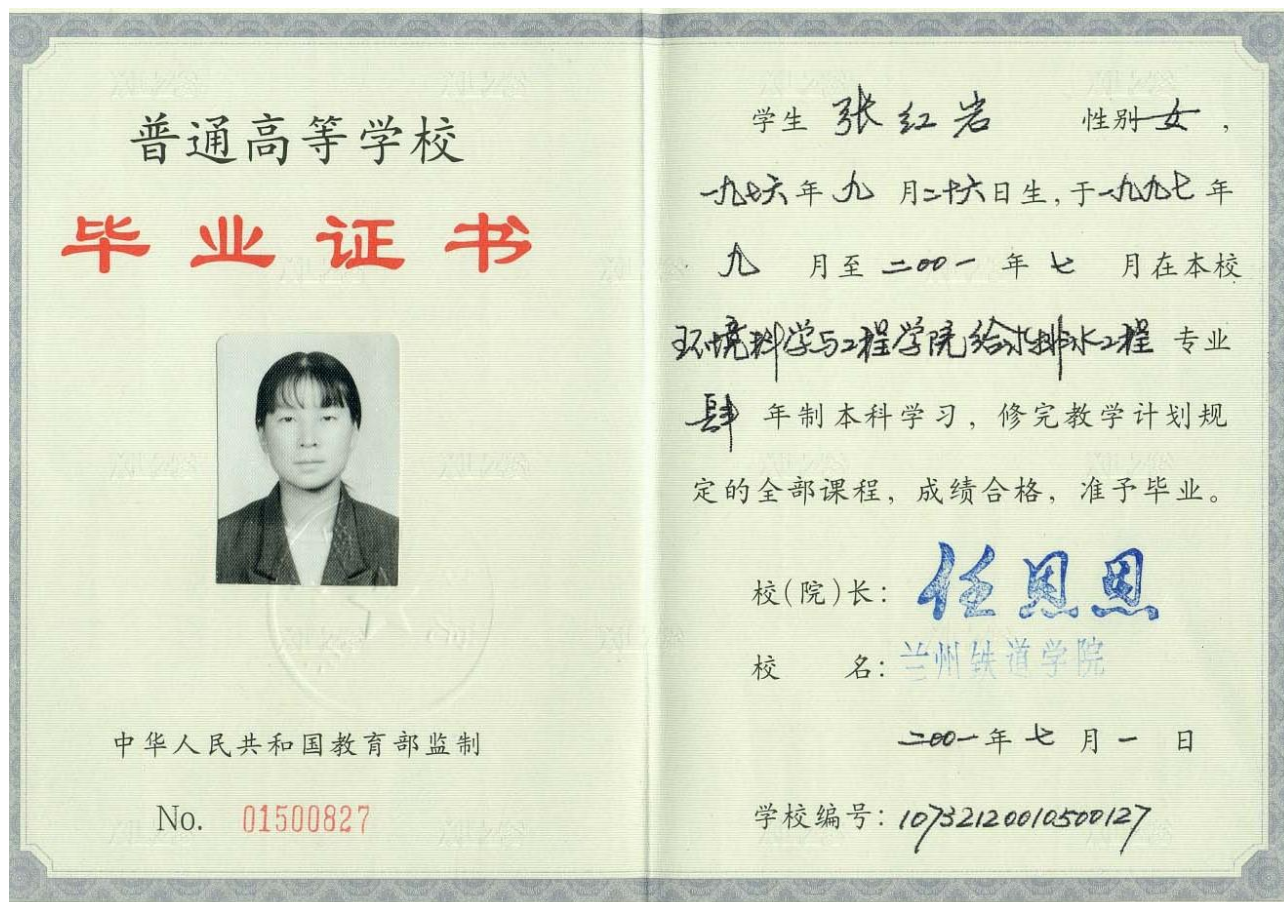 普通高等学校
毕业证书
中华人民共和国教育部监制
No. 01500827
学生 张红岩 性别 女，
一九七六年 九 月二十六日生，于一九九七年
九 月至 二00一 年 七 月在本校
环境科学与工程学院给水排水工程 专业
肆 年制本科学习，修完教学计划规
定的全部课程，成绩合格，准予毕业。
校(院)长：任恩恩
校 名：兰州铁道学院
二00一年 七 月 一 日
学校编号：10732120010500127